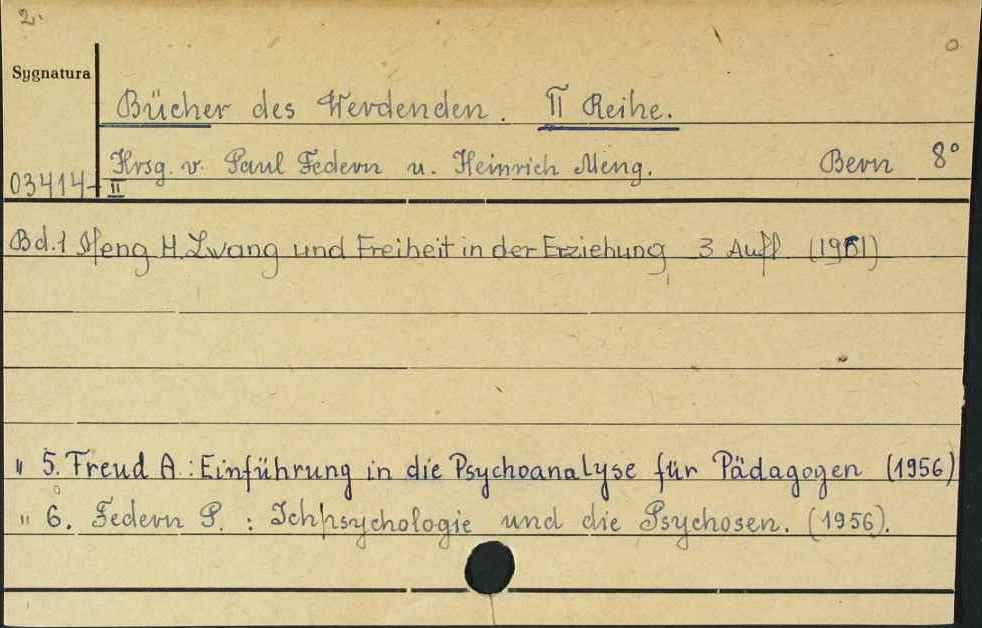 2.
Sygnatura
Bücher des Werdenden. II Reihe.
Hrsg. v. Paul Federn u. Heinrich Meng. Bern 8°
03414 II
Bd. 1 Meng H. Zwang und Freiheit in der Erziehung 3 Aufl (1961)
" 5. Freud A.: Einführung in die Psychoanalyse für Pädagogen (1956)
" 6. Federn P. : Ichpsychologie und die Psychosen. (1956).